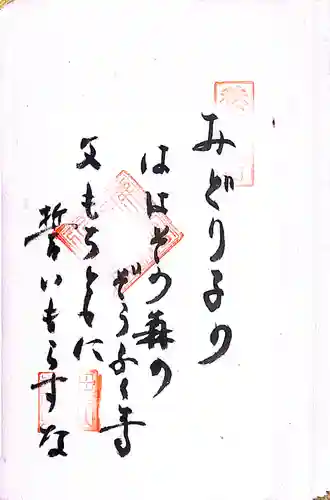 みどり子の
ははその森の
ぞうよく寺
父もろともに
誓いもらすな